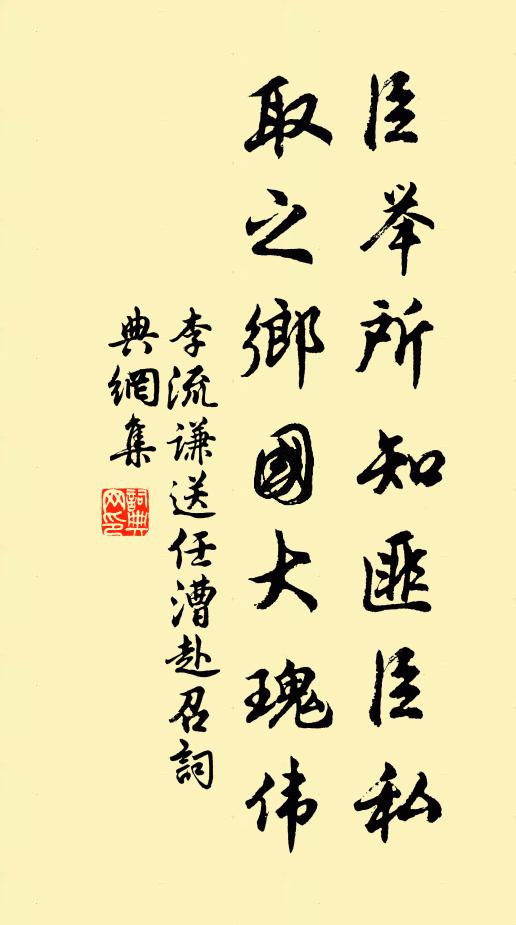 臣举所知匪臣私
取之鄉國大瑰伟
李流谦送任漕赴召詞
典網集
詞典網印